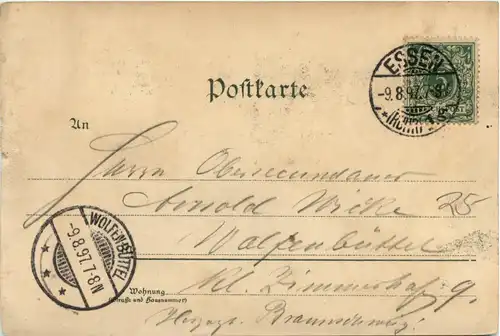 ESSEN
-9.8.97.7-8N
(RUHR) 1 S
Postkarte
An
Herrn Obersecundaner
Arnold Wicke 25
Wolfenbüttel
WOLFENBÜTTEL
-9.8.97.7-8N
Kl. Zimmerhof 9.
Wohnung
(Straße und Hausnummer)
Herzogt. Braunschweig